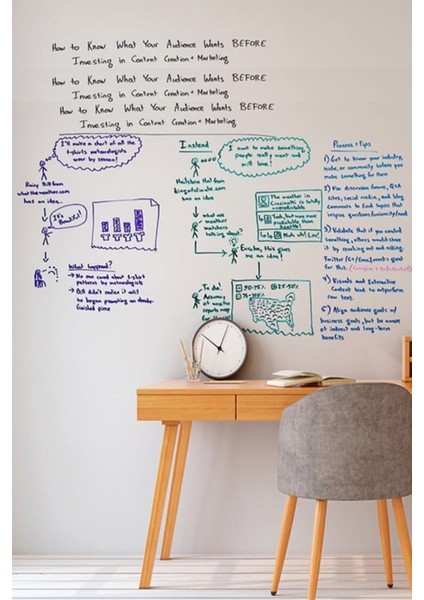 How to Know What Your Audience Wants BEFORE
Investing in Content Creation + Marketing
How to Know What Your Audience Wants BEFORE
Investing in Content Creation + Marketing
How to Know What Your Audience Wants BEFORE
Investing in Content Creation + Marketing
I'll make a chart of all the
t-shirts meteorologists
wear by season!
Rainy Bill from
whattheweather.com
has an idea...
It's Beautiful!
What happened?
→ No one cared about t-shirt
patterns by meteorologists
→ Bill didn't realize it until
he began promoting
finished piece
Instead
I want to make something
people really want and
will love!
Hailstorm Hal from
has an idea
what are
weather
watchers
talking about?
The weather in
Cincinnati is totally
unpredictable
Yeah, but more
predictable than
Seattle!
Nuh uh! Lou!
Eureka, this gives
me an idea!
To do:
Accuracy
of weather
reports may
for US
50-75%
25-50%
76-100%
Process + Tips
1) Get to know your industry,
niche, or community before you
make something for them
2) Use discussion forums, Q&A
sites, social media, and blog
comments to find topics that
inspire questions/curiosity/need
3) Validate that if you created
something, others would share
it by reaching out and asking.
Twitter/G+/Email/etc's great
for this.
4) Visuals and Interactive
Content tend to outperform
raw text.
5) Align audience goals w/
business goals, but be aware
of indirect and long-term
benefits